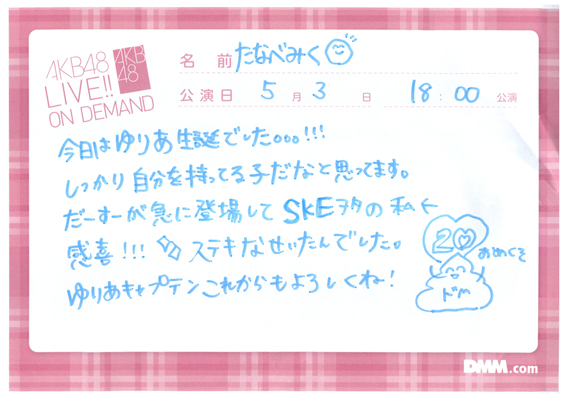 AKB48
LIVE!!
ON DEMAND
AKB
48
名 前 たなべみく
公演日 5 月 3 日 18:00 公演
今日はゆりあ生誕でした。。。!!!
しっかり自分を持ってる子だなと思ってます。
だーすーが急に登場して SKEヲタの私←
感喜!!! ステキなせいたんでした。
ゆりあキャプテンこれからもよろしくね!
20
おめくそ
ドM
DMM.com